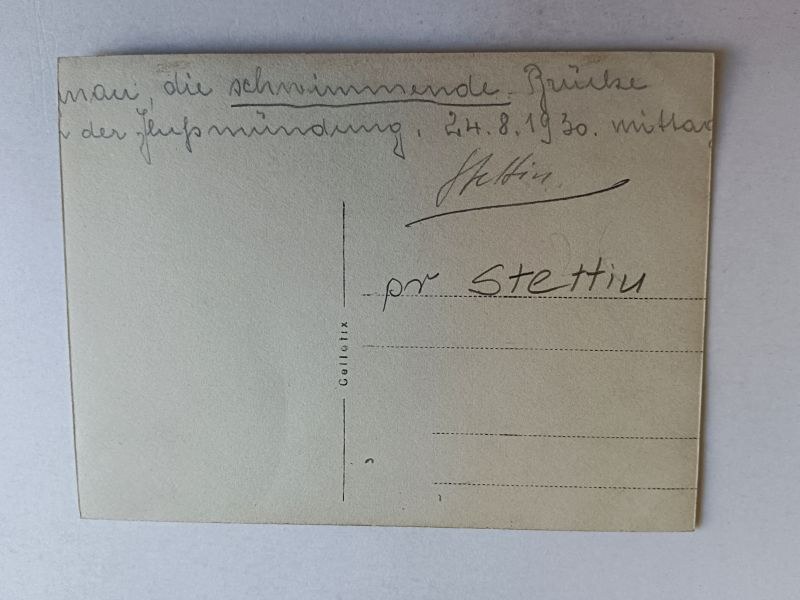 die schwimmende Brücke
der Flußmündung, 24.8.1930. mittag
Stettin
pr Stettin
Cellofix